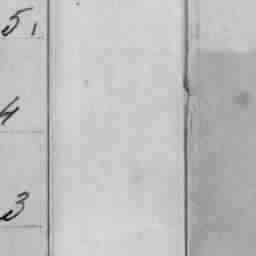 5,
4
3